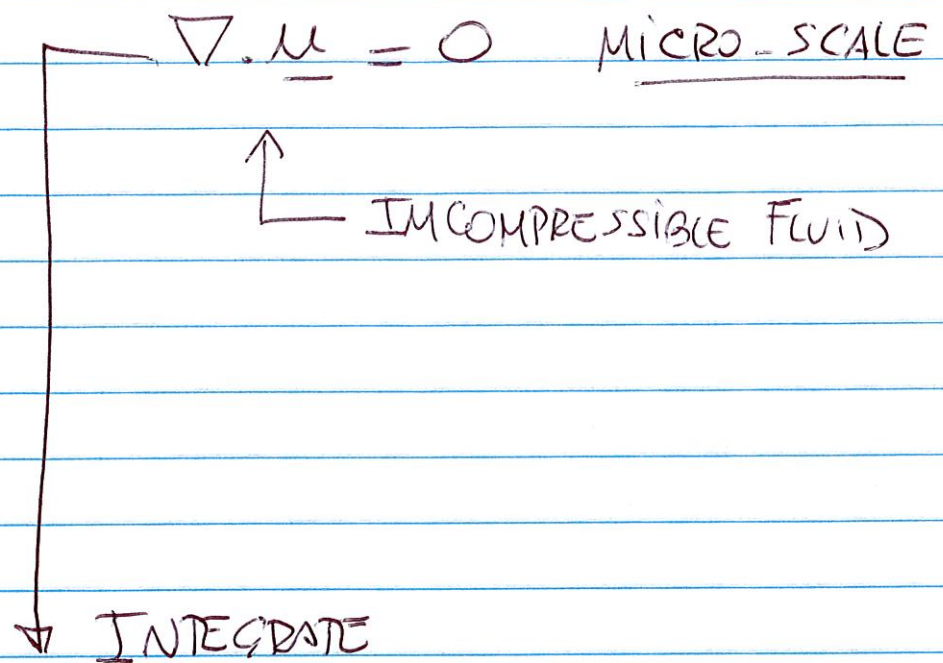 ∇.u = 0 MICRO-SCALE
IMCOMPRESSIBLE FLUID
INTEGRATE